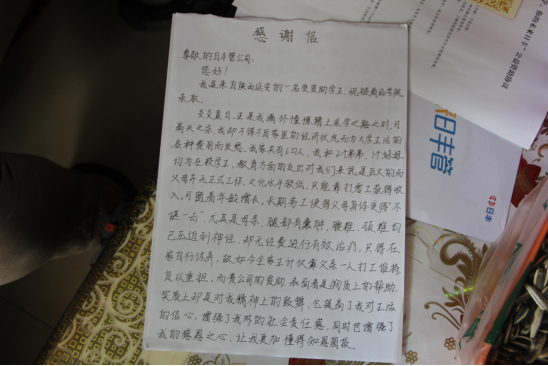 感谢信
尊敬的日丰管公司:
您好!
我是来自陕西延安的一名受资助学生,现
承取。
炎炎夏日,正是我满怀憧憬踏上求学之路之时,可
高兴之余,我却不得不因家里的经济状况而为大学生活的
各种费用而发愁。我家共有6口人,我和2个弟弟
均为在校学生,教育方面的支出对我们来说是巨大的而
父母并无正式工作,文化水平较低,只能靠打零工获得收
入,可随着年龄增长,长期劳工使得父母身体变得“不
堪一击”尤其是母亲,腿部有囊肿,腰椎、颈椎
已压迫到神经,却无经费进行有效治疗,只得在
家自行休养,故如今全家生计仅靠父亲一人打工维持
负以重担,而贵公司的资助,表面看是物质上的帮助,
实质上却是对我精神上的鼓舞,它提高了我对生活
的信心,增强了我的社会责任感,同时也增强了
我的感恩之心,让我更加懂得知恩图报。
日丰管
日丰